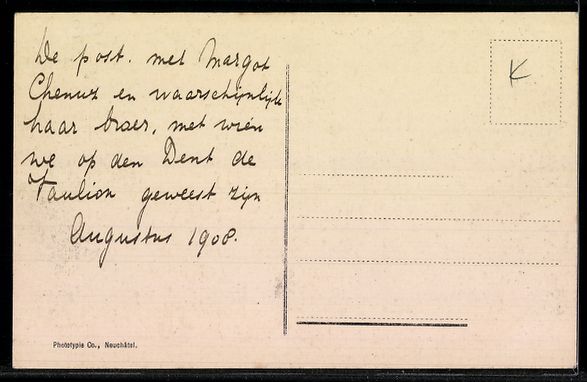 De post. met Margot
Chenux en waarschijnlijk
haar broer, met wien
we op den Dent de
Vaulion geweest zijn
Augustus 1908.
K
Phototypie Co., Neuchâtel.